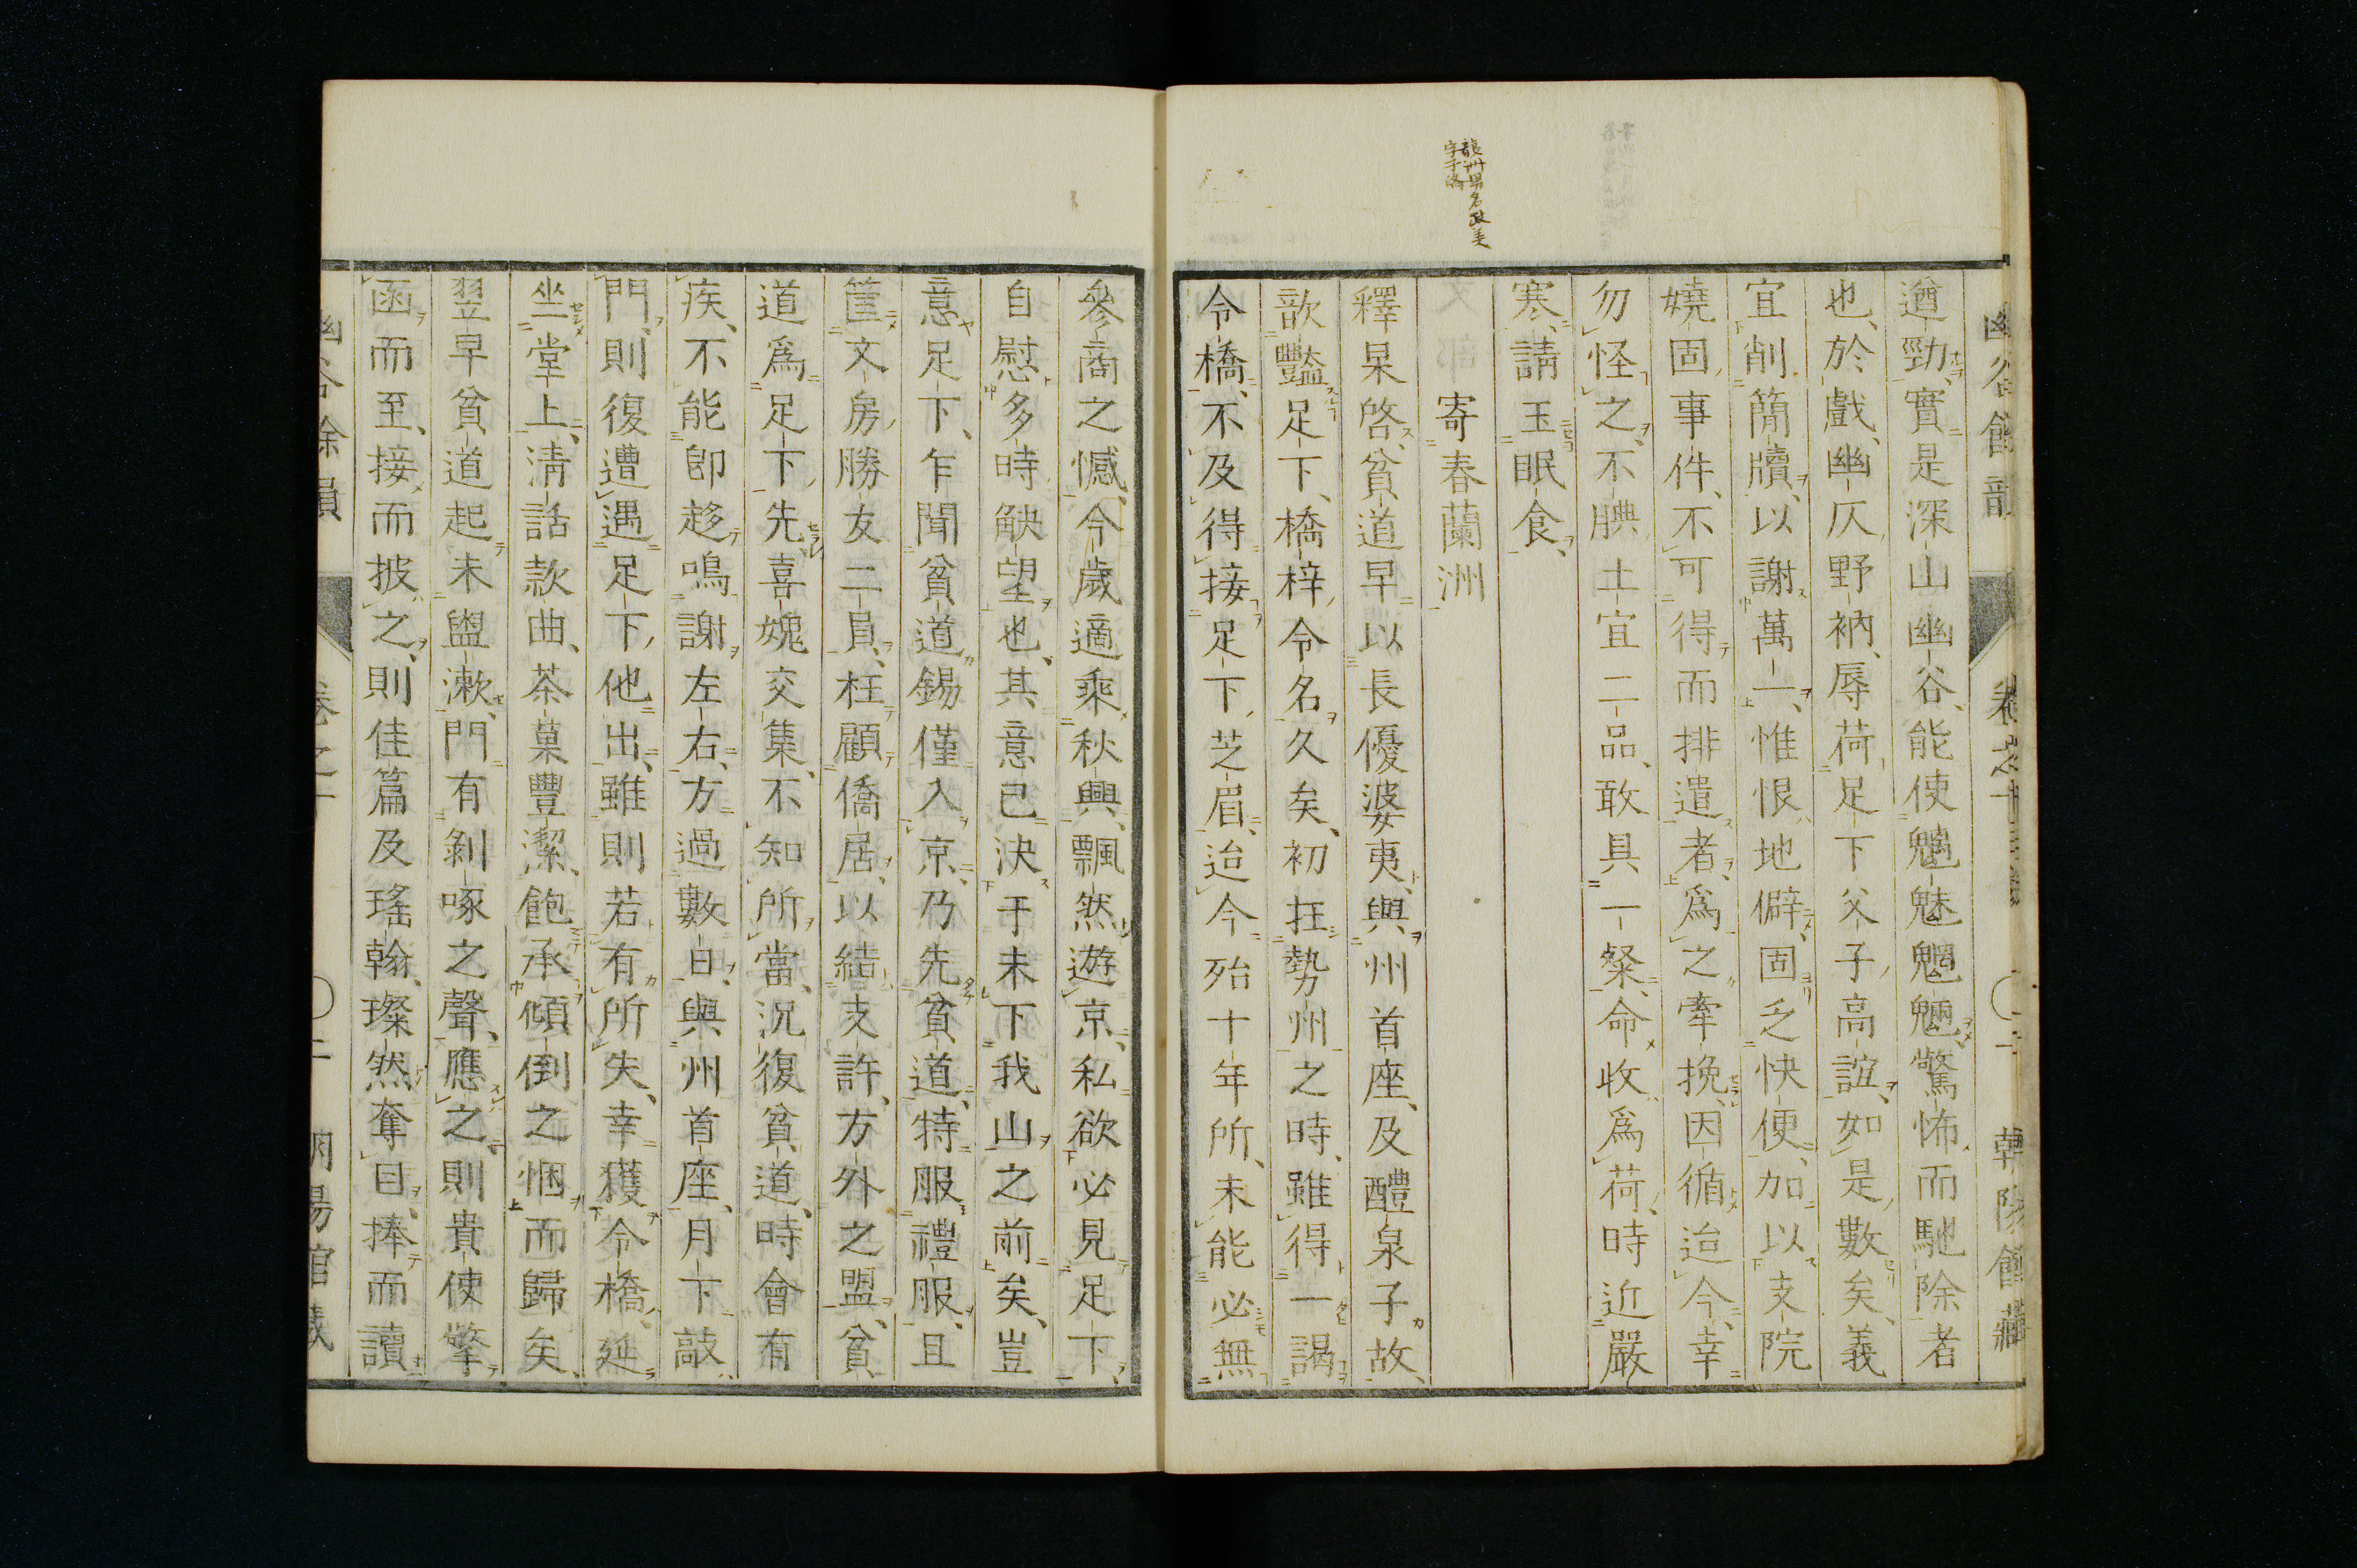 遒勁、實是深山幽谷、能使魑魅魍魎、驚怖而馳除者
也、於戲、幽仄野衲、辱荷足下父子高誼、如是數矣、義
宜削簡牘、以謝萬一、惟恨地僻、固乏快便、加以支院
嬈固事件、不可得而排遣者、爲之牽挽、因循迨今、幸
勿怪之、不腆土宜二品、敢具一粲、命收爲荷、時近嚴
寒、請玉眠食、
寄春蘭洲
釋杲啓、貧道早以長優婆夷、與州首座、及醴泉子故、
歆豔足下、橋梓令名久矣、初抂勢州之時、雖得一謁
令橋、不及得接足下芝眉、迨今殆十年所、未能必無
參商之憾、今歲適乘秋興、飄然遊京、私欲必見足下、
自慰多時觖望也、其意已決于未下我山之前矣、豈
意足下、乍聞貧道錫僅入京、乃先貧道、特服禮服、且
筐文房勝友二員、枉顧僑居、以結支許、方外之盟、貧
道爲足下先、喜媿交集、不知所當、況復貧道、時會有
疾、不能卽趍鳴謝左右、方過數日、與州首座、月下敲
門、則復遭遇足下他出、雖則若有所失、幸獲令橋、延
坐堂上、淸話款曲、茶菓豐潔、飽承傾倒之悃而歸矣、
翌早貧道起未盥漱、門有剝啄之聲、應之、則貴使擎
函而至、接而披之、則佳篇及瑤翰、璨然奪目、捧而讀